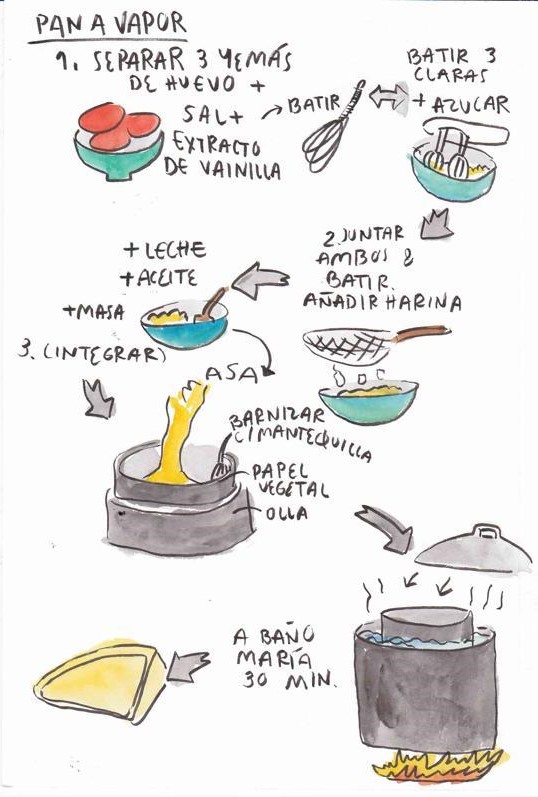 PAN A VAPOR
1. SEPARAR 3 YEMÁS
DE HUEVO +
SAL +
EXTRACTO
DE VAINILLA
BATIR
BATIR 3
CLARAS
+ AZUCAR
2. JUNTAR
AMBOS &
BATIR.
AÑADIR HARINA
+ LECHE
+ ACEITE
+ MASA
3. (INTEGRAR)
ASA
BARNIZAR
C/MANTEQUILLA
PAPEL
VEGETAL
OLLA
A BAÑO
MARÍA
30 MIN.